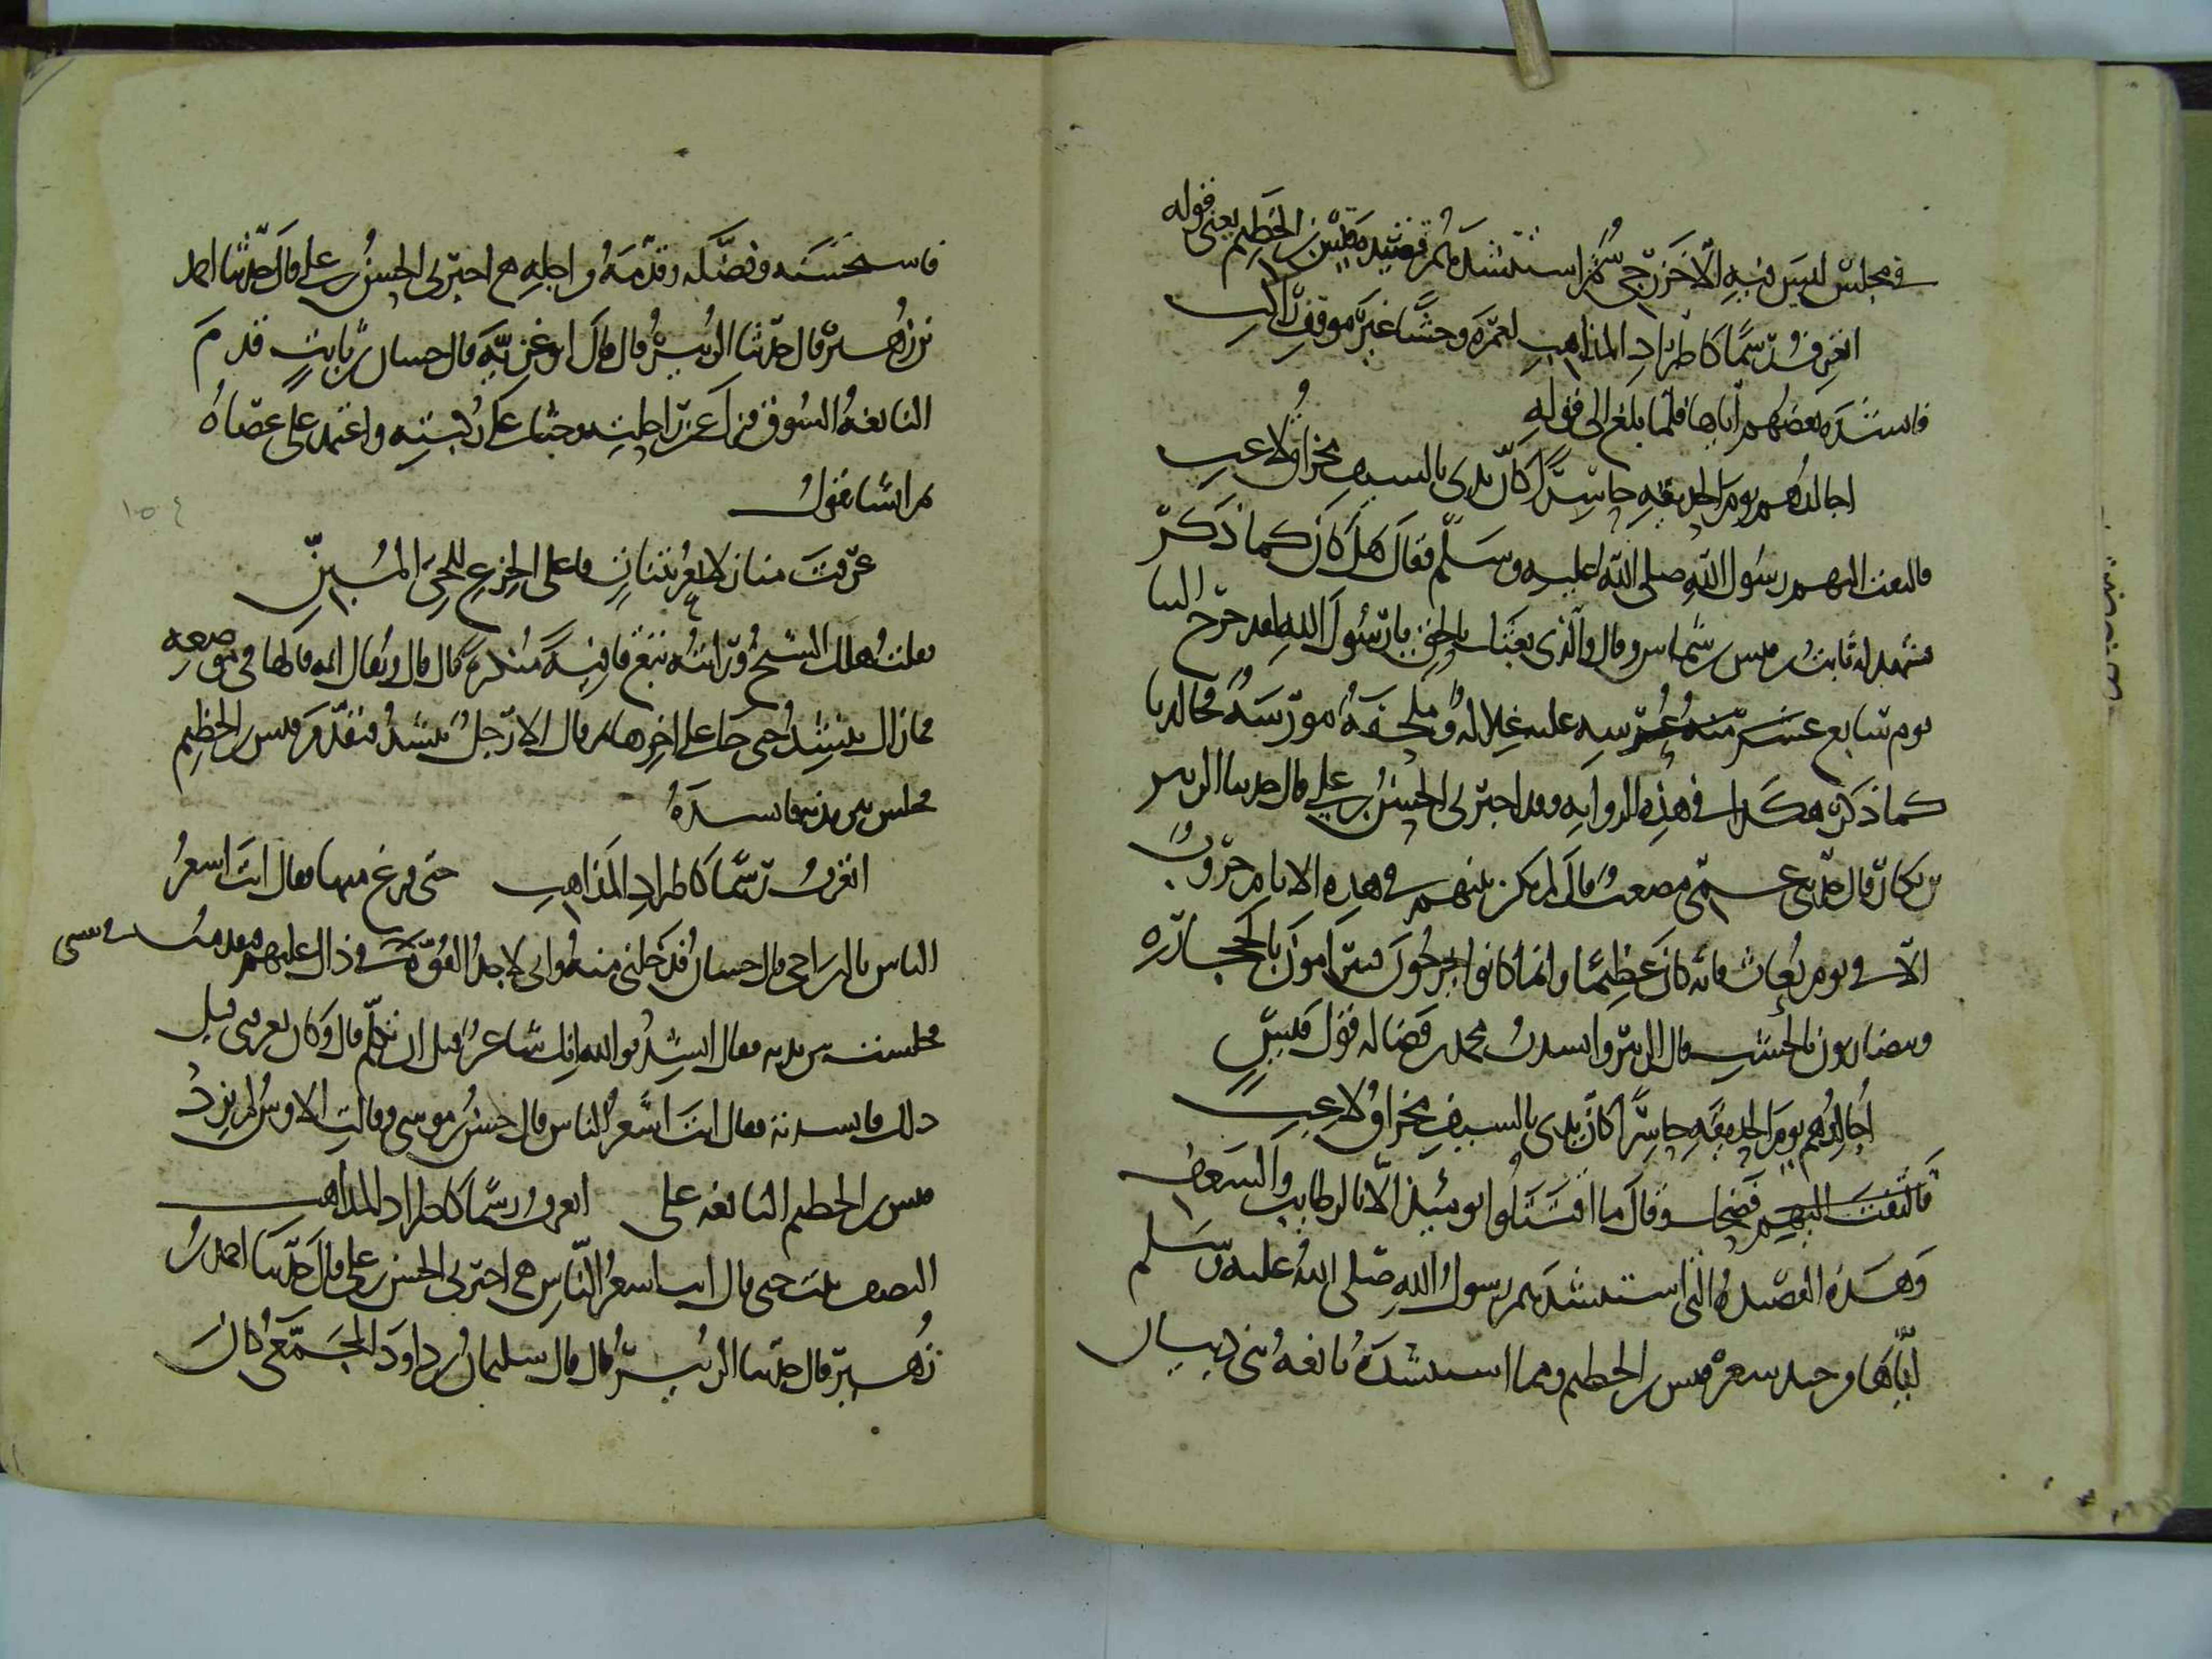 في مجلس ليس فيه إلا خزرجي ثم استنشدهم قصيدة قيس بن الخطيم يعني قوله
اتعرف رسما كاطراد المذاهب لعمرة وحشا غير موقف راكب
فانشده بعضهم اياها فلما بلغ الى قوله
اجالدهم يوم الحديقة حاسرا كان يدي بالسيف مخراق لاعب
فالتفت اليهم رسول الله صلى الله عليه وسلم فقال هل كان كما ذكر
فشهد له ثابت بن قيس بن شماس وقال والذي بعثك بالحق يا رسول الله لقد خرج الينا
يوم سابع عرسه عليه غلالة وملحفة مورسة فجالدنا
كما ذكر هكذا في هذه الرواية وقد اخبرني الحسن بن علي قال حدثنا الزبير
بن بكار قال حدثني عمي مصعب قال لم يكن بينهم في هذه الايام حروب
الا في يوم بعاث فانه كان عظيما وانما كانوا يخرجون فيترامون بالحجارة
ويتضاربون بالخشب قال الزبير وانشدت محمد بن فضالة قول قيس
اجالدهم يوم الحديقة حاسرا كان يدي بالسيف مخراق لاعب
فضحك وقال ما اقتتلوا يومئذ الا بالرطائب والسعف
وهذه القصيدة التي استنشدهم رسول الله صلى الله عليه وسلم
اياها من جيد شعر قيس بن الخطيم ومما انشده نابغة بني ذبيان
فاستحسنه وفضله وقدمه من اجله اخبرني الحسن بن علي قال حدثنا احمد
بن زهير قال حدثنا الزبير قال قال ابو غزية قال حسان بن ثابت قدم
النابغة السوق فنزل عن راحلته وجثا على ركبتيه واعتمد على عصاه
ثم انشا يقول
عرفت منازلا بعريتنات فاعلى الجزع للحي المبن
فقلت هلك الشيخ ورايته تبع قافية منكرة قال ويقال انه قالها في موضعه
فما زال ينشد حتى اتى على اخرها ثم قال الا رجل ينشد فتقدم قيس بن الخطيم
فجلس بين يديه فانشده
اتعرف رسما كاطراد المذاهب حتى فرغ منها فقال انت اشعر
الناس يا ابن اخي قال حسان فدخلني منه واني لاجد القوة في نفسي في ذلك عليهم فتقدمت
فجلست بين يديه فقال انشد فوالله انك لشاعر قبل ان تتكلم قال وكان يعرفني قبل
ذلك فانشدته فقال انت اشعر الناس قال حسن بن موسى وقالت الاوس لم يزد
قيس بن الخطيم النابغة على اتعرف رسما كاطراد المذاهب
النصف بيت حتى قال انت اشعر الناس اخبرني الحسن بن علي قال حدثنا احمد بن
زهير قال حدثنا الزبير قال قال سليمان بن داود المجمعي كان
١٥٤